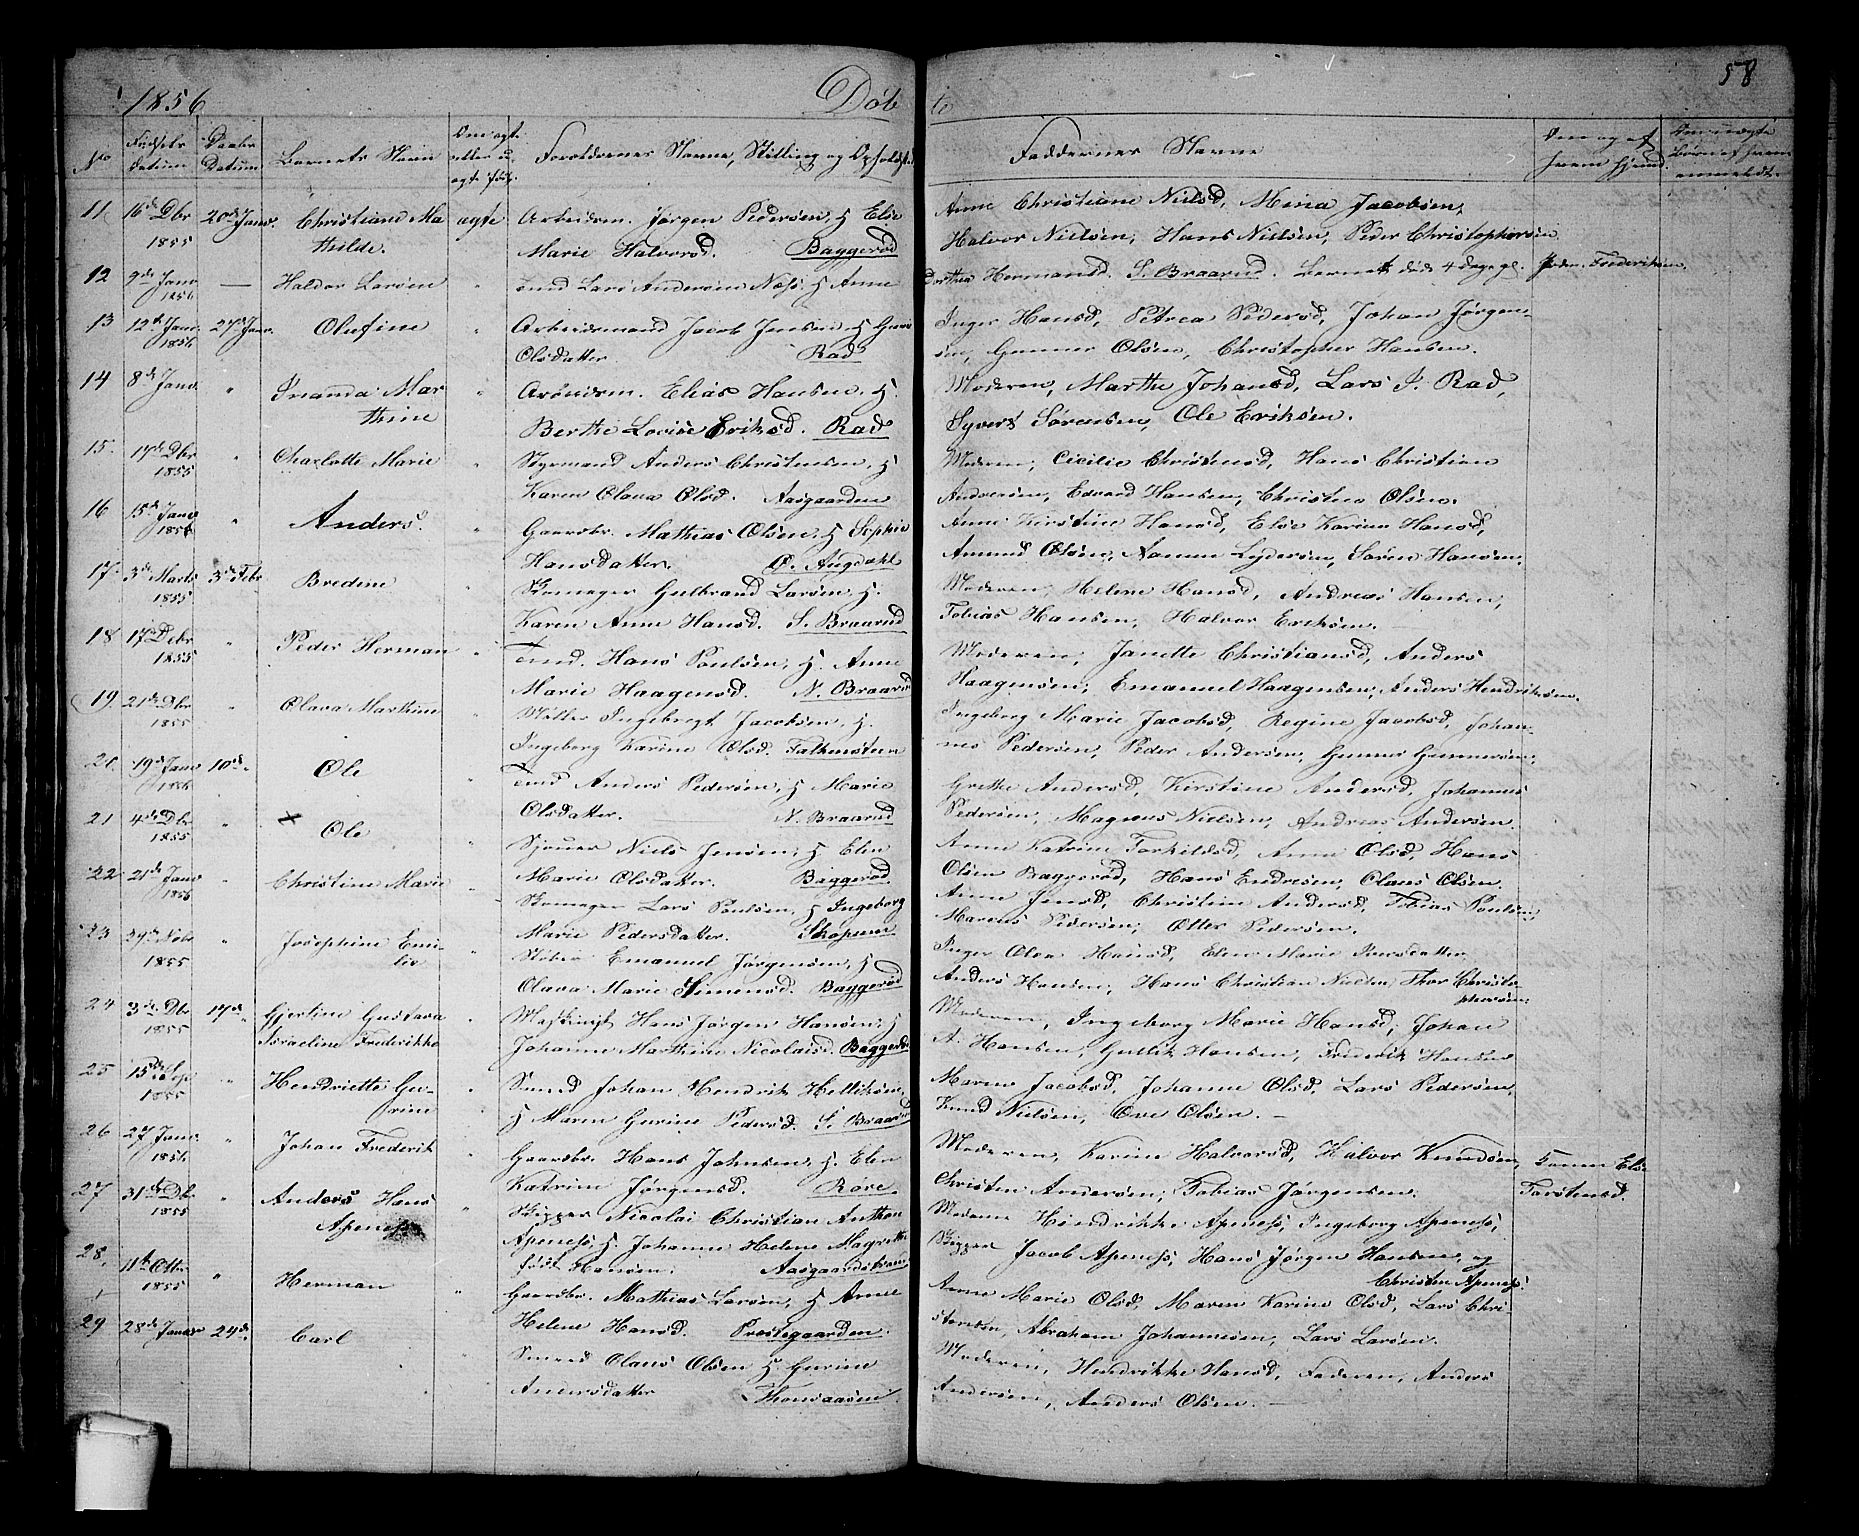 1856 Døbte 58
No Fødsels Datum Daabs Datum Barnets Navn Om ægte eller uægte født Forældrenes Navne, Stilling og Opholdsted Faddernes Navne
11 16de Dbr 1855 20de Janr. Christiane Mathilde. ægte Arbeidsm. Jørgen Pedersen, H Else
Marie Halvorsd. Baggerød
Anne Christiane Nielsd, Mina Jacobsen,
Halvor Nielsen, Hans Nielsen, Peder Christophersen
12 9de Janr 1856 — Haldor Larsen " Tmd Lars Andersen Næss H Anne
Dorthea Hermansd. S. Braarud. Barnet døde 4 Dage gl. Peder Frederiksen.
13 12te Janr. 1856 27de Janr. Olufine " Arbeidsmand Jacob Jensen H
Olsdatter. Rød
Inger Hansd, Petrea Pedersd, Johan Jørgensen,
Gunner Olsen, Christopher Hansen.
14 8de Janr. " Inanda Marthine " Arbeidsm. Elias Hansen, H.
Berthe Lovise Eriksd. Rød
Moderen, Marthe Johansd, Lars J. Rød,
Syvert Sørensen, Ole Eriksen.
15. 17de Dbr 1855 " Charlotte Marie " Styrmand Anders Christensen, H
Karen Olava Olsd. Aasgaarden
Moderen, Cicilie Christensd, Hans Christian
Andreasen, Edvard Hansen, Christen Olsen.
16 15de Janr 1856 " Anders. " Gaardbr. Mathias Olsen, H Sophie
Hansdatter. Ø. Augedahl
Anne Kirstine Hansd, Else Karine Hansd,
Amund Olsen, Namun Lydersen, Søren Hansen.
17. 3de Marts 1855 3de Febr Bredine " Skomager Gulbrand Larsen H.
Karen Anne Hansd. S. Braarud
Moderen, Helene Hansd, Andreas Hansen,
Tobias Hansen, Halvor Eriksen.
18 17de Debr 1855 " Peder Herman " Tmd. Hans Poulsen, H. Anne
Marie Haagensd. N. Braarud
Moderen, Janette Christiansd, Anders
Haagensen, Emanuel Haagensen, Anders Hendriksen.
19. 21de Dbr 1855 " Olava Marthine " Møller Ingebregt Jacobsen, H.
Ingeborg Karine Olsd. Falkensteen
Ingeborg Marie Jacobsd, Regine Jacobsd, Johannes
Pedersen, Peder Andersen, Gunner Gunnersen.
20. 19de Janr 1856 10de. Ole " Tmd Anders Pedersen, H Marie
Olsdatter. N. Braarud
Grethe Andersd, Kirstine Andersd, Johannes
Pedersen, Magnus Nielsen, Andreas Andersen.
21 4de Dbr 1855 " Ole " Niels Jensen, H Elen
Marie Olsdatter. Baggerød
Anne Katrine Torkildsd, Anne Olsd, Hans
Olsen Baggerød, Hans Endresen, Olaus Olsen.
22 21de Janr 1856 " Christine Marie " Skomager Lars Poulsen, H Ingeborg
Marie Pedersdatter. Skopum
Anne Jensd, Christine Andersd, Tobias Poulsen,
Marcus Pedersen, Otter Pedersen.
23 29de Nobr 1855 " Josephine Emilie " Emanuel Jørgensen, H
Olava Marie Simensd. Baggerød
Inger Olea Hansd, Elen Marie Larsdatter,
Anders Hansen, Hans Christian Nielsen, Thor Christophersen.
24 3de Dbr 1855 17de " Gjertine Gustava Israeline Frederikke " Hans Jørgen Hansen, H
Johanne Marthine Nicolaisd. Baggerød
Moderen, Ingeborg Marie Hansd, Johan
A. Hansen, Gullik Hansen, Frederik Hansen
25 15de Sep. 1855 " Hendriette Gurine " Smed Johan Hendrik Helliksen,
H Maren Gurine Pedersd. S. Braarud
Maren Jacobsd, Johanne Olsd, Lars Pedersen,
Knud Nielsen, Ove Olsen. —
26 27 Janr. 1856 " Johan Frederik " Gaardbr. Hans Johnsen, H. Elen
Katrine Jørgensd. Røre
Moderen, Karine Halvorsd, Halvor Knudsen,
Christen Andersen, Tobias Jørgensen. Konen Else Torstensd.
27 31de Dbr 1855 " Anders Hans Apeness " Skipper Nicolai Christian Anthon
Apeness H Johanne Helene Magrethe
født Hansen. Aasgaardstrand
Madame Hendrikke Apeness, Ingeborg Apeness,
Skipper Jacob Apeness, Hans Jørgen Hansen, og
Christen Apeness.
28. 11te Otbr 1855 " Herman " Gaardbr. Mathias Larsen, H Anne
Helene Hansd. Præstegaarden.
Anne Marie Olsd, Maren Karine Olsd, Lars Christensen,
Abraham Johannesen, Lars Larsen.
29 28de Janr 24de. Carl " Smed Olaus Olsen H. Gurine
Andersdatter Thorsaasen.
Moderen, Hendrikke Hansd, Faderen, Anders
Andersen, Anders Olsen. —